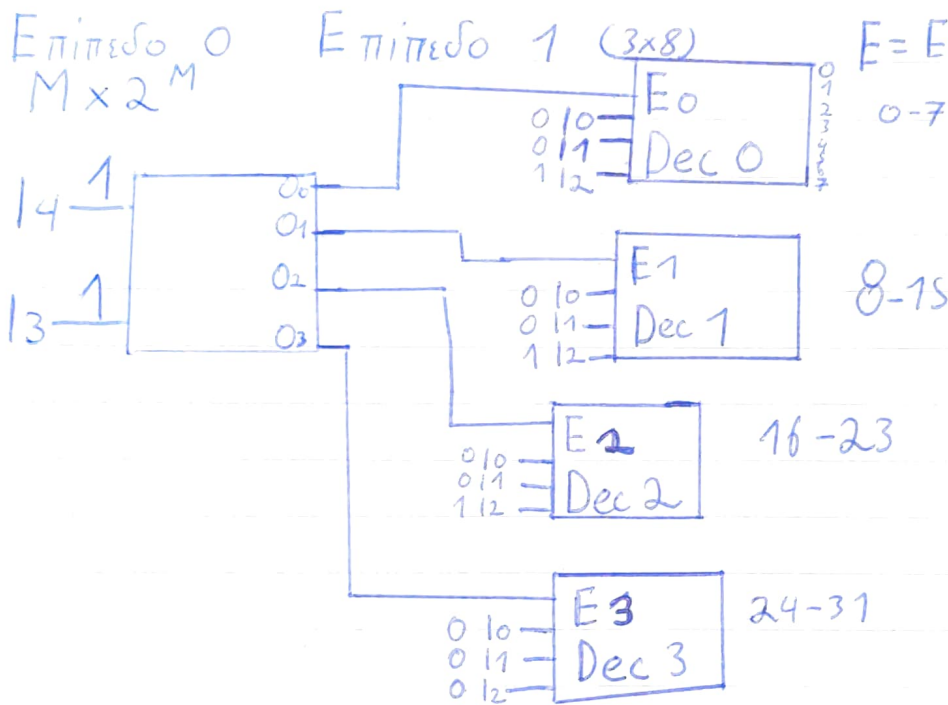 Επίπεδο 0
M x 2^M
Επίπεδο 1 (3x8)
E = E
I4 1
I3 1
O0
O1
O2
O3
E0
0 I0
0 I1
1 I2
Dec 0
0
1
2
3
4
7
0-7
E1
0 I0
0 I1
1 I2
Dec 1
8-15
E2
0 I0
0 I1
1 I2
Dec 2
16-23
E3
0 I0
0 I1
0 I2
Dec 3
24-31